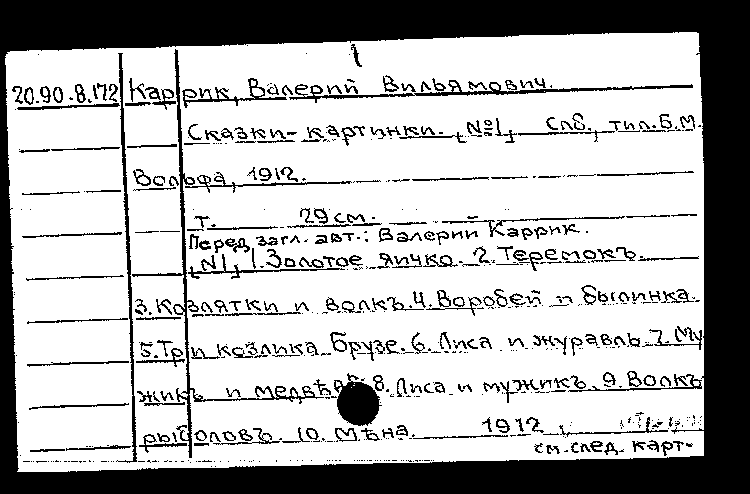 1
20.90.8.172 Каррик, Валерий Вильямович.
Сказки-картинки. [№1] Спб., тип. Б.М.
Вольфа, 1912.
т. 29 см.
Перед загл. авт.: Валерий Каррик.
[№1] 1. Золотое яичко. 2. Теремокъ.
3. Козлятки и волкъ. 4. Воробей и былинка.
5. Три козлика Брузе. 6. Лиса и журавль. 7. Му
жикъ и медвѣдь. 8. Лиса и мужикъ. 9. Волкъ
рыболовъ. 10. Мѣна. 1912,
см. след. карт.